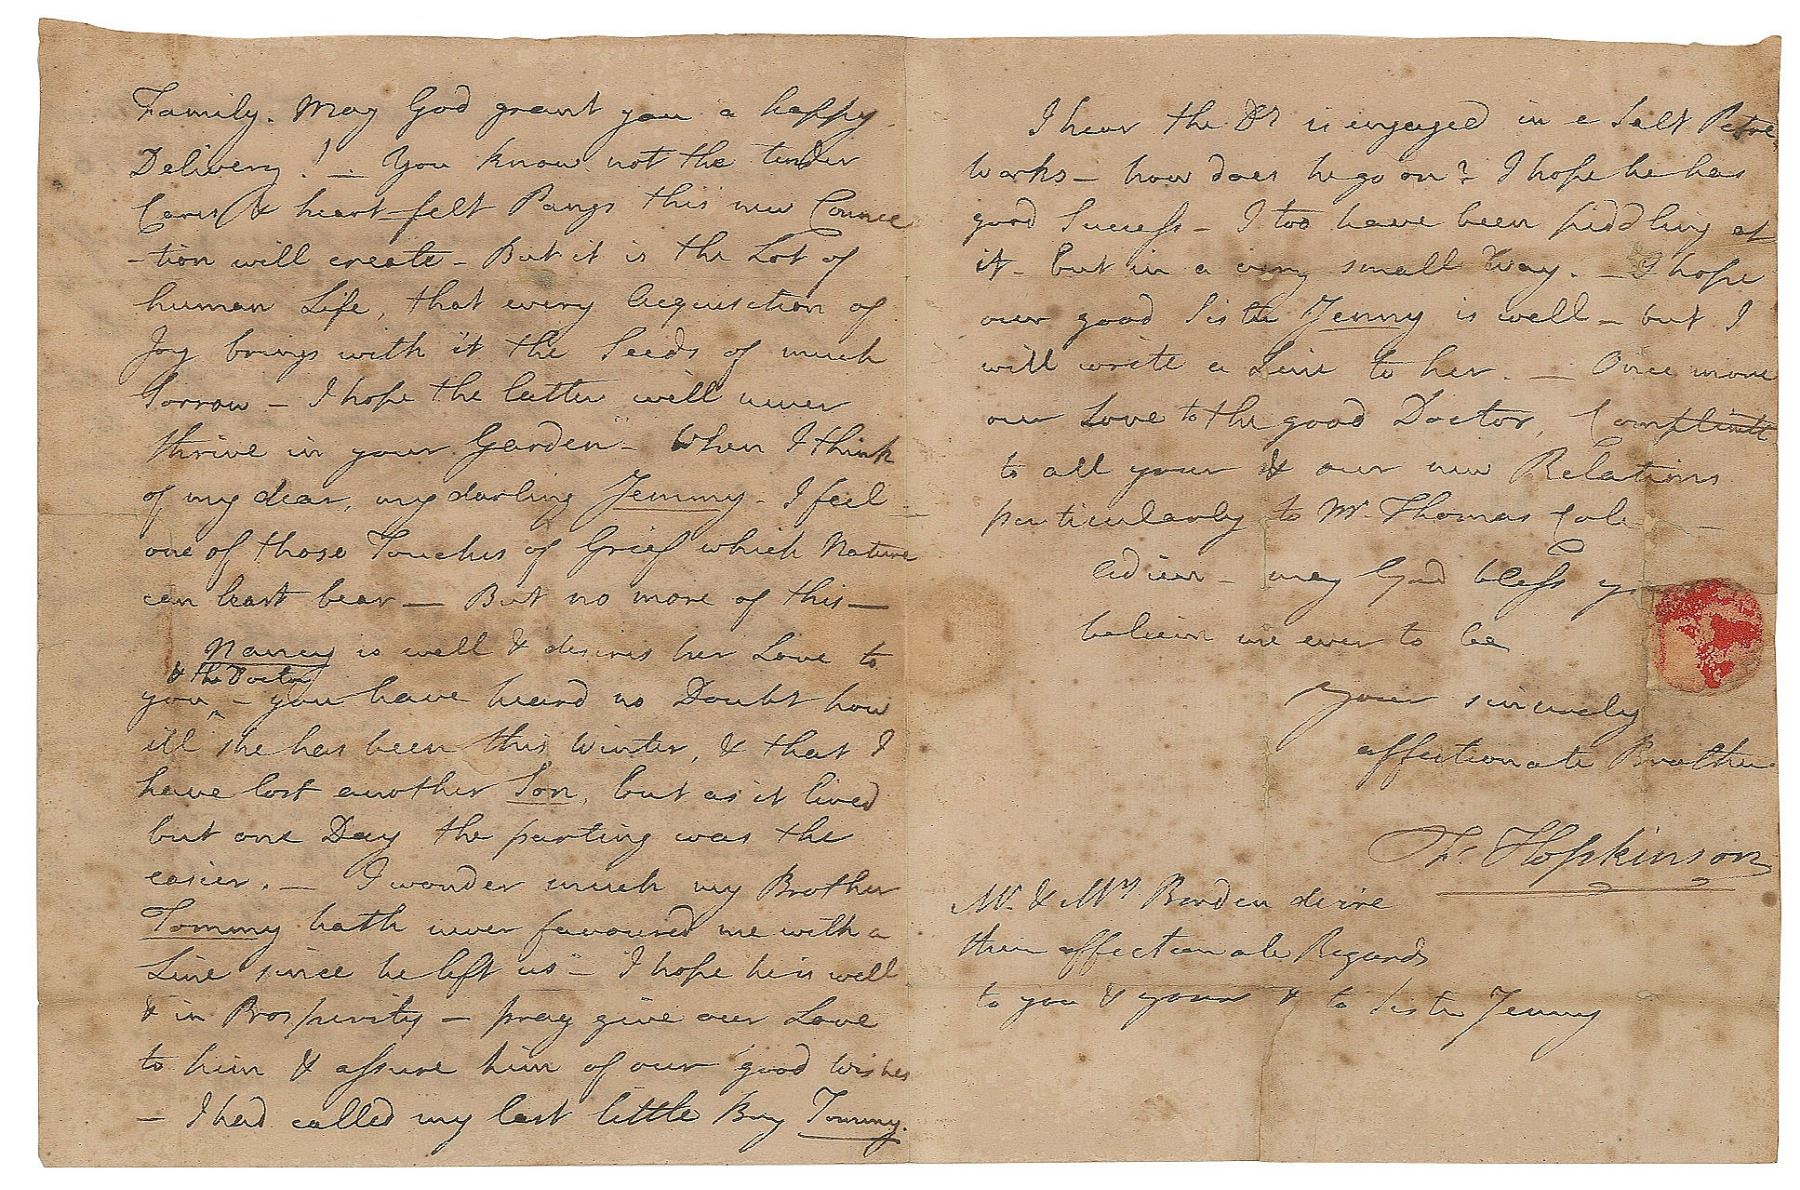 Family. May God grant you a happy
Delivery! — You know not the tender
Cares & heart-felt Pangs this new Connec
-tion will create - But it is the Lot of
human Life, that every Acquisition of
Joy brings with it the Seeds of much
Sorrow - I hope the latter will never
thrive in your Garden - When I think
of my dear, my darling Jemmy - I feel
one of those Touches of Grief which Nature
can least bear — But no more of this —
Nancy is well & desires her Love to
& the Doctor
you ‸ - you have heard no Doubt how
ill she has been this Winter, & that I
have lost another Son, but as it lived
but one Day the parting was the
easier. — I wonder much my Brother
Tommy hath never favoured me with a
Line since he left us - I hope he is well
& in Prosperity - pray give our Love
to him & assure him of our good wishes
— I had called my last little Boy Tommy.
I hear the Dr is engaged in a Salt Petre
works - how does he go on? I hope he has
good Success - I too have been piddling at
it - but in a very small Way. - I hope
our good Sister Jenny is well - but I
will write a Line to her. — Once more
our Love to the good Doctor, Complimts
to all your & our new Relations
particularly to Mr. Thomas
Adieu - may God bless
believe me ever to be
Your sincerely
affectionate Brother
Fs Hopkinson
Mr. & Mrs Borden desire
their affectionate Regards
to you & yours & to Sister Jenny